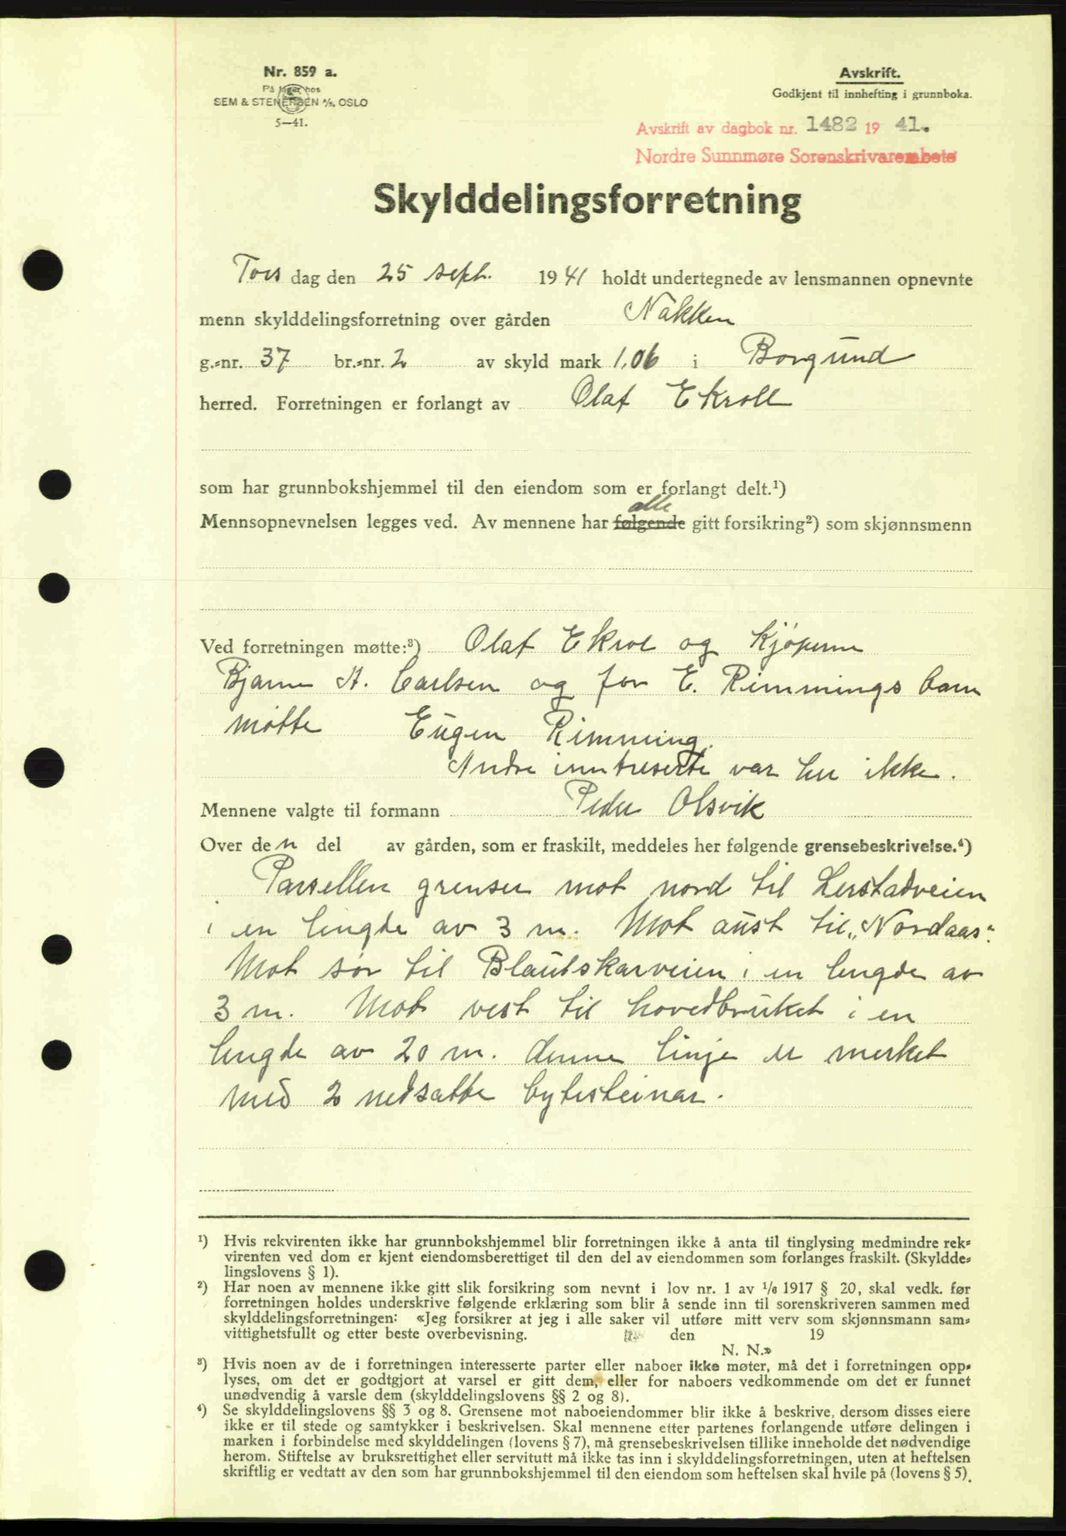 Nr. 859 a.
På lager hos
SEM & STENERSEN A/S, OSLO
5—41.
Avskrift.
Godkjent til innhefting i grunnboka.
Avskrift av dagbok nr. 1482 19 41.
Nordre Sunnmøre Sorenskrivarembete
Skylddelingsforretning
Tors dag den 25 sept. 1941 holdt undertegnede av lensmannen opnevnte
menn skylddelingsforretning over gården Nakken
g.-nr. 37 br.-nr. 2 av skyld mark 1,06 i Borgund
herred. Forretningen er forlangt av Olaf Ekroll
som har grunnbokshjemmel til den eiendom som er forlangt delt.¹)
alle
Mennsopnevnelsen legges ved. Av mennene har følgende gitt forsikring²) som skjønnsmenn
Ved forretningen møtte:³) Olaf Ekrol og Kjøperne
Bjarne A. Carlsen og for E. Rimmings barn
møtte Eugen Rimming.
Andre inntreserte var her ikke.
Mennene valgte til formann Peder Olsvik
Over den del av gården, som er fraskilt, meddeles her følgende grensebeskrivelse.⁴)
Parsellen grenser mot nord til Lerstadveien
i en lengde av 3 m. Mot aust til „Nordaas“.
Mot sør til Blautskarveien i en lengde av
3 m. Mot vest til hovedbruket i en
lengde av 20 m. denne linje er merket
med 2 nedsatte bytesteinar.
¹) Hvis rekvirenten ikke har grunnbokshjemmel blir forretningen ikke å anta til tinglysing medmindre rek-
virenten ved dom er kjent eiendomsberettiget til den del av eiendommen som forlanges fraskilt. (Skyldde-
lingslovens § 1).
²) Har noen av mennene ikke gitt slik forsikring som nevnt i lov nr. 1 av 1/6 1917 § 20, skal vedk. før
forretningen holdes underskrive følgende erklæring som blir å sende inn til sorenskriveren sammen med
skylddelingsforretningen: «Jeg forsikrer at jeg i alle saker vil utføre mitt verv som skjønnsmann sam-
vittighetsfullt og etter beste overbevisning. den 19
N. N.»
³) Hvis noen av de i forretningen interesserte parter eller naboer ikke møter, må det i forretningen opp-
lyses, om det er godtgjort at varsel er gitt dem, eller for naboers vedkommende om det er funnet
unødvendig å varsle dem (skylddelingslovens §§ 2 og 8).
⁴) Se skylddelingslovens §§ 3 og 8. Grensene mot naboeiendommer blir ikke å beskrive, dersom disses eiere
ikke er til stede og samtykker i beskrivelsen. Skal mennene etter partenes forlangende utføre delingen i
marken i forbindelse med skylddelingen (lovens § 7), må grensebeskrivelsen tillike inneholde det nødvendige
herom. Stiftelse av bruksrettighet eller servitutt må ikke tas inn i skylddelingsforretningen, uten at heftelsen
skriftlig er vedtatt av den som har grunnbokshjemmel til den eiendom som heftelsen skal hvile på (lovens § 5).